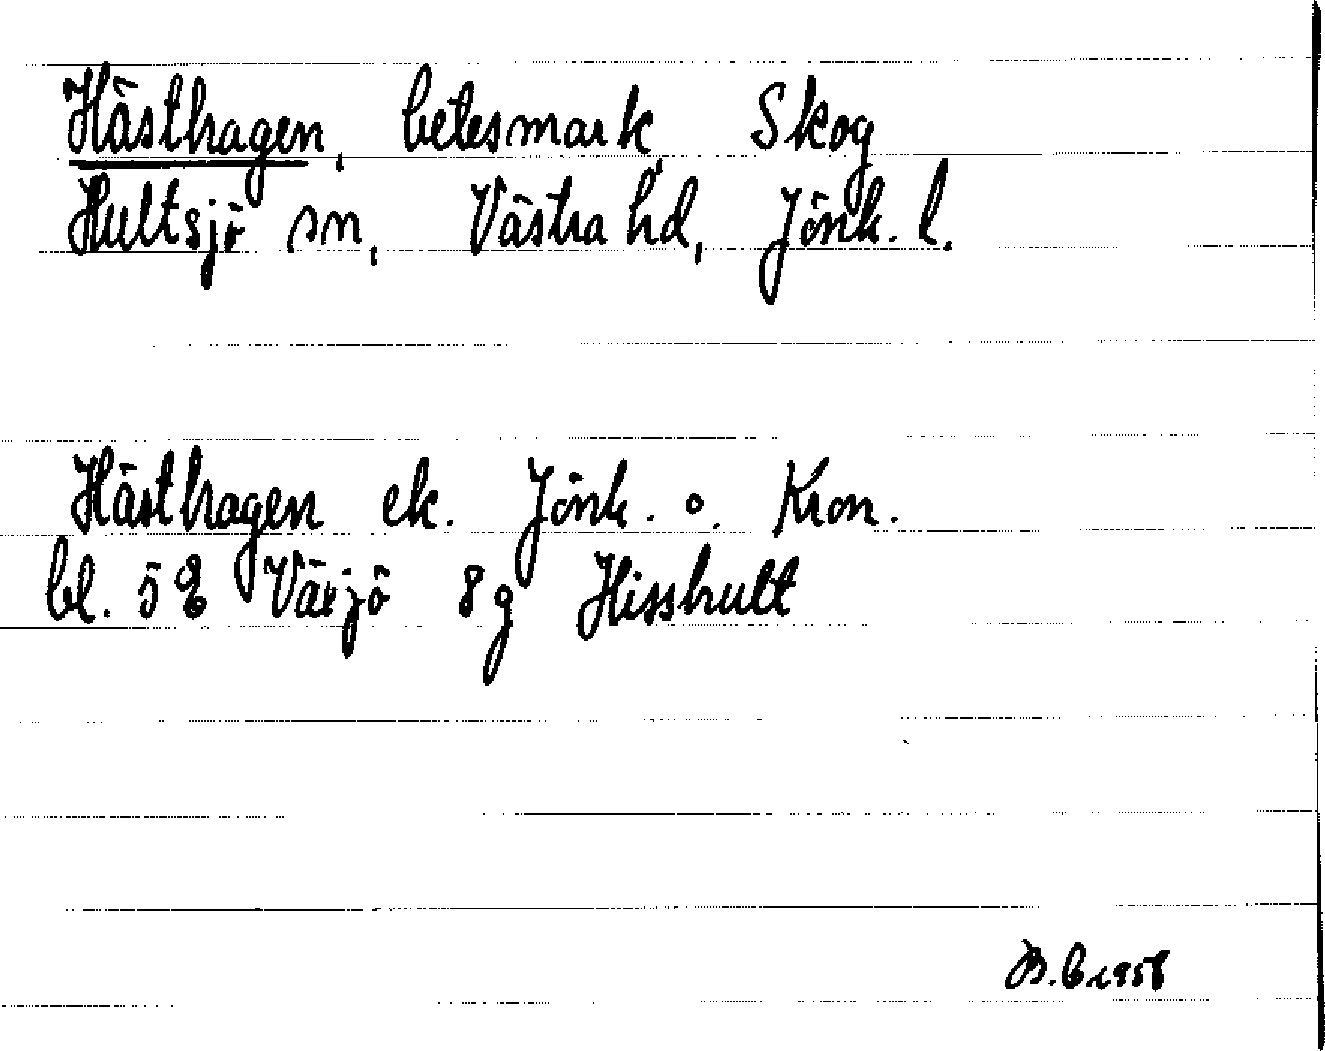 Hästhagen, betesmark, Skog
Hultsjö sn, Västra hd, Jönk. l.
Hästhagen ek. Jönk. o. Kron.
bl. 5 E Växjö 8g Hisshult